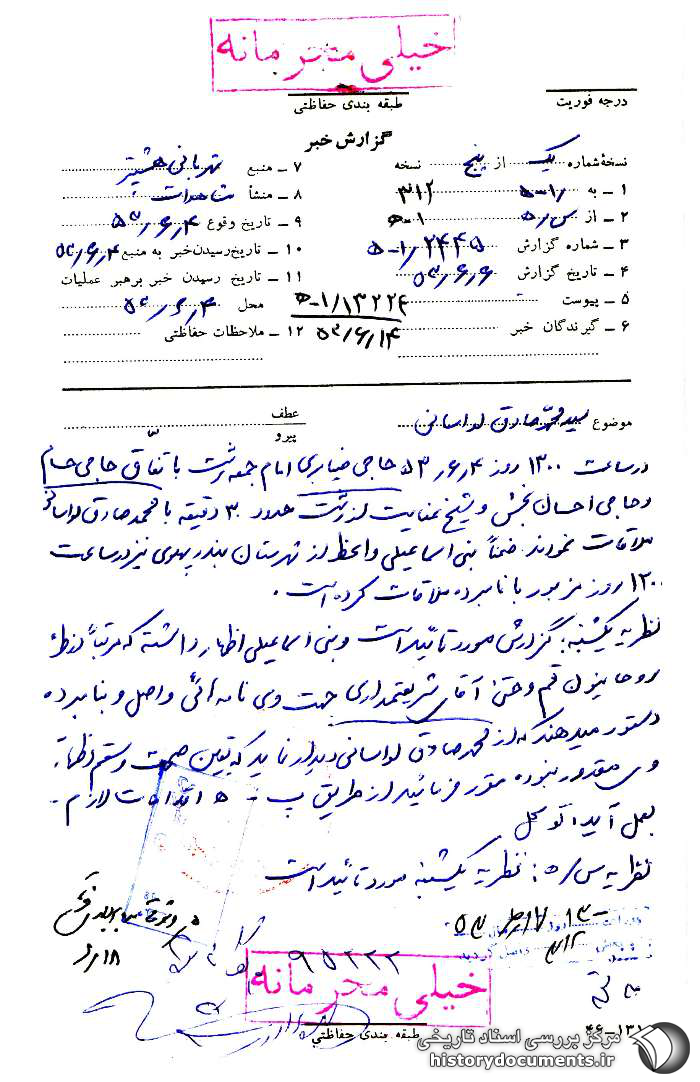 خیلی محرمانه
طبقه بندی حفاظتی
درجه فوریت
گزارش خبر
نسخهٔ شماره یک از پنج نسخه
۱ ـ به ۳۱۲
۲ ـ از
۳ ـ شماره گزارش
۴ ـ تاریخ گزارش ۵۳٫۶٫۶
۵ ـ پیوست
۶ ـ گیرندگان خبر
۷ ـ منبع
۸ ـ منشأ
۹ ـ تاریخ وقوع ۵۳٫۶٫۴
۱۰ ـ تاریخ رسیدن خبر به منبع ۵۳٫۶٫۴
۱۱ ـ تاریخ رسیدن خبر برهبر عملیات
محل ۵۳٫۶٫۴
۱۲ ـ ملاحظات حفاظتی
۵۳٫۶٫۱۴
موضوع سید محمد صادق لواسانی
عطف
پیرو
در ساعت ۱۳۰۰ روز ۵۳٫۶٫۴ حاجی ضیابری امام جمعه رشت باتفاق حاجی
و حاجی احسان بخش و شیخ عنایت از رشت حدود ۳۰ دقیقه با محمد صادق لواسانی
ملاقات نمودند ضمناً بنی اسماعیلی واعظ از شهرستان بندر پهلوی نیز در ساعت
۱۲۰۰ روز مزبور با نامبرده ملاقات کرده است.
نظریه یکشنبه: گزارش مورد تائید است و بنی اسماعیلی اظهار داشته که مرتباً از طرف
روحانیون قم و حتی آقای شریعتمداری جهت وی نامه‌ائی واصل و بنامبرده
دستور میدهند که از محمد صادق لواسانی دیدار نماید که تعیین صحت و سقم اظهارات
وی مقدور نبوده مقرر فرمائید از طریق اقدامات لازم
بعمل آید.
نظریه س/ه: نظریه یکشنبه مورد تائید است
۹۵۲۲۲
خیلی محرمانه
طبقه بندی حفاظتی
۴۶-۱۳۱
مرکز بررسی اسناد تاریخی
historydocuments.ir